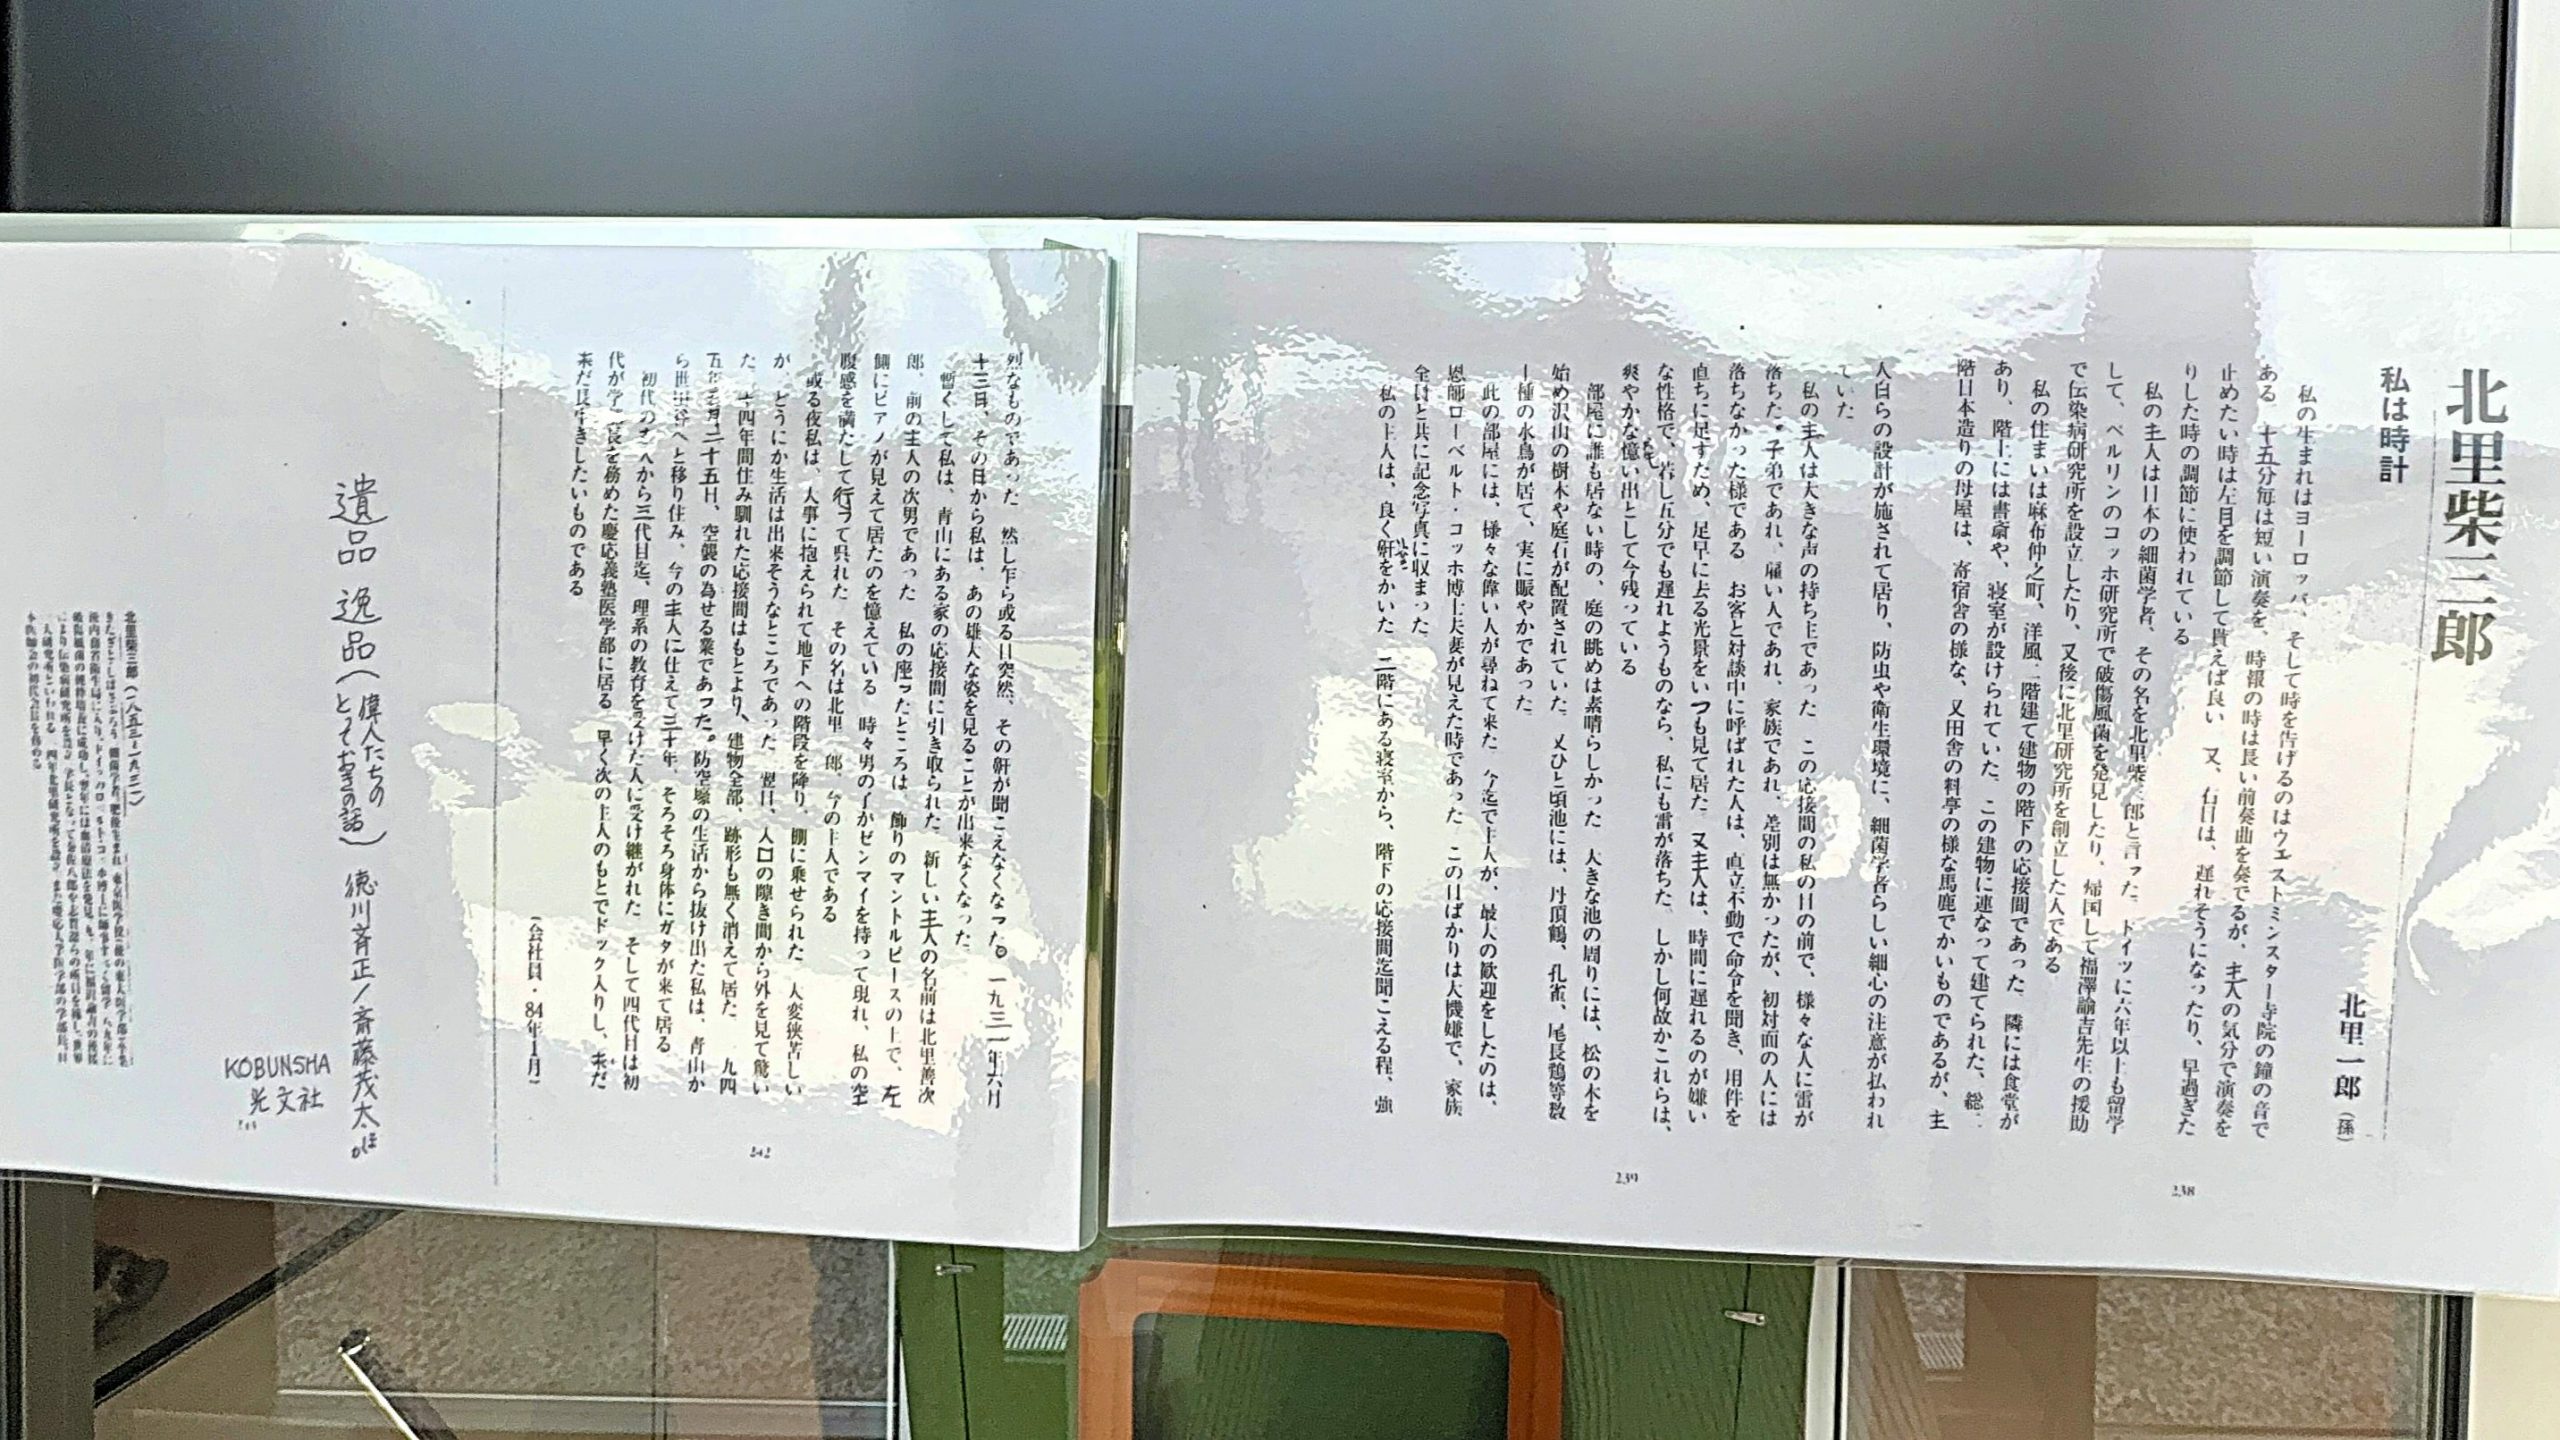 北里柴三郎
私は時計
北里一郎(孫)
私の生まれはヨーロッパ、そして時を告げるのはウエストミンスター寺院の鐘の音で
ある 十五分毎は短い演奏を、時報の時は長い前奏曲を奏でるが、主人の気分で演奏を
止めたい時は左目を調節して貰えば良い 又、右目は、遅れそうになったり、早過ぎた
りした時の調節に使われている
私の主人は日本の細菌学者、その名を北里柴三郎と言った ドイツに六年以上も留学
して、ベルリンのコッホ研究所で破傷風菌を発見したり、帰国して福澤諭吉先生の援助
で伝染病研究所を設立したり、又後に北里研究所を創立した人である
私の住まいは麻布仲之町、洋風二階建て建物の階下の応接間であった 隣には食堂が
あり、階上には書斎や、寝室が設けられていた この建物に連なって建てられた、総二
階日本造りの母屋は、寄宿舎の様な、又田舎の料亭の様な馬鹿でかいものであるが、主
人自らの設計が施されて居り、防虫や衛生環境に、細菌学者らしい細心の注意が払われ
ていた
私の主人は大きな声の持ち主であった この応接間の私の目の前で、様々な人に雷が
落ちた。子弟であれ、雇い人であれ、家族であれ、差別は無かったが、初対面の人には
落ちなかった様である お客と対談中に呼ばれた人は、直立不動で命令を聞き、用件を
直ちに足すため、足早に去る光景をいつも見て居た 又主人は、時間に遅れるのが嫌い
な性格で、若し五分でも遅れようものなら、私にも雷が落ちた しかし何故かこれらは、
爽やかな憶い出として今残っている
部屋に誰も居ない時の、庭の眺めは素晴らしかった 大きな池の周りには、松の木を
始め沢山の樹木や庭石が配置されていた 又ひと頃池には、丹頂鶴、孔雀、尾長鶏等数
十種の水鳥が居て、実に賑やかであった
此の部屋には、様々な偉い人が尋ねて来た 今迄で主人が、最大の歓迎をしたのは、
恩師ローベルト・コッホ博士夫妻が見えた時であった この日ばかりは大機嫌で、家族
全員と共に記念写真に収まった
私の主人は、良く鼾をかいた 二階にある寝室から、階下の応接間迄聞こえる程、強
238
239
烈なものであった 然し乍ら或る日突然、その鼾が聞こえなくなった。一九三一年六月
十三日、その日から私は、あの雄大な姿を見ることが出来なくなった
暫くして私は、青山にある家の応接間に引き取られた 新しい主人の名前は北里善次
郎、前の主人の次男であった 私の座ったところは、飾りのマントルピースの上で、左
側にピアノが見えて居たのを憶えている 時々男の子がゼンマイを持って現れ、私の空
腹感を満たして行って呉れた その名は北里一郎、今の主人である
或る夜私は、大事に抱えられて地下への階段を降り、棚に乗せられた 大変狭苦しい
が、どうにか生活は出来そうなところであった 翌日、入口の隙き間から外を見て驚い
た 十四年間住み馴れた応接間はもとより、建物全部、跡形も無く消えて居た 一九四
五年五月二十五日、空襲の為せる業であった。防空壕の生活から抜け出た私は、青山か
ら世田谷へと移り住み、今の主人に仕えて三十年、そろそろ身体にガタが来て居る
初代の主人から三代目迄、理系の教育を受けた人に受け継がれた そして四代目は初
代が学部長を務めた慶応義塾医学部に居る 早く次の主人のもとでドック入りし、未だ
未だ長生きしたいものである
(会社員・84年1月)
242
遺品 逸品(偉人たちのとっておきの話) 徳川斉正/斎藤茂太ほか
KOBUNSHA
光文社
北里柴三郎(一八五三―一九三一)